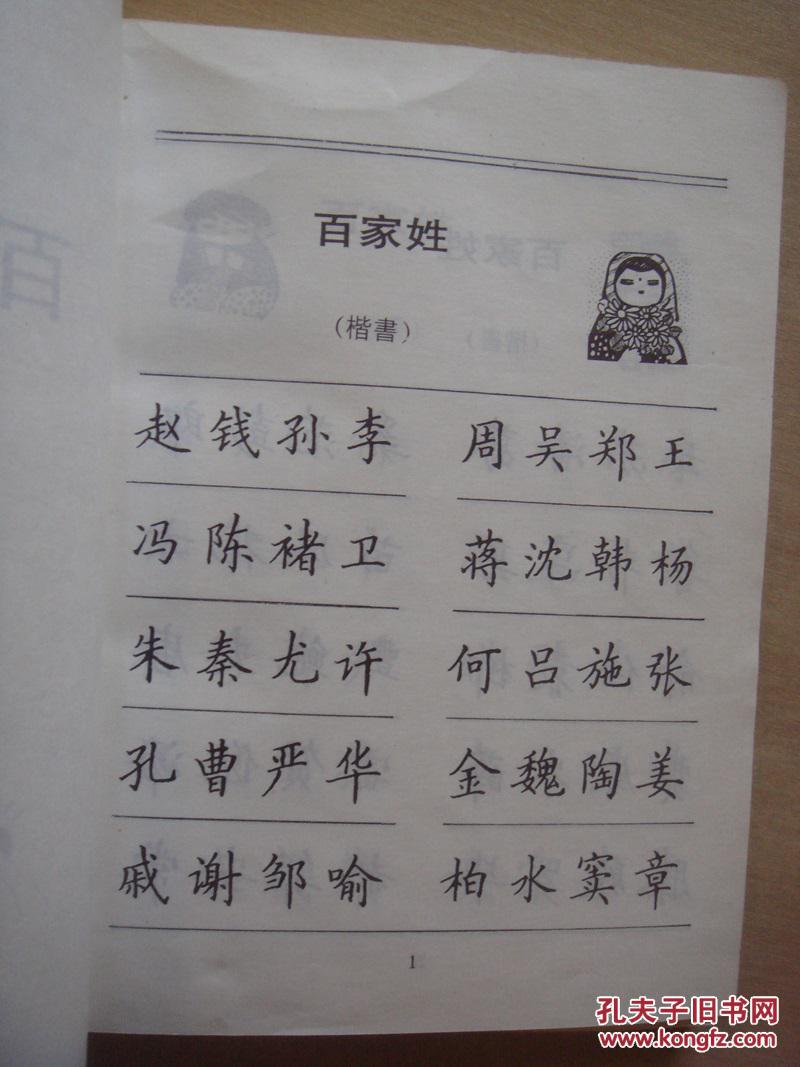 百家姓
(楷書)
赵钱孙李 周吴郑王
冯陈褚卫 蒋沈韩杨
朱秦尤许 何吕施张
孔曹严华 金魏陶姜
戚谢邹喻 柏水窦章
1
孔夫子旧书网
www.kongfz.com